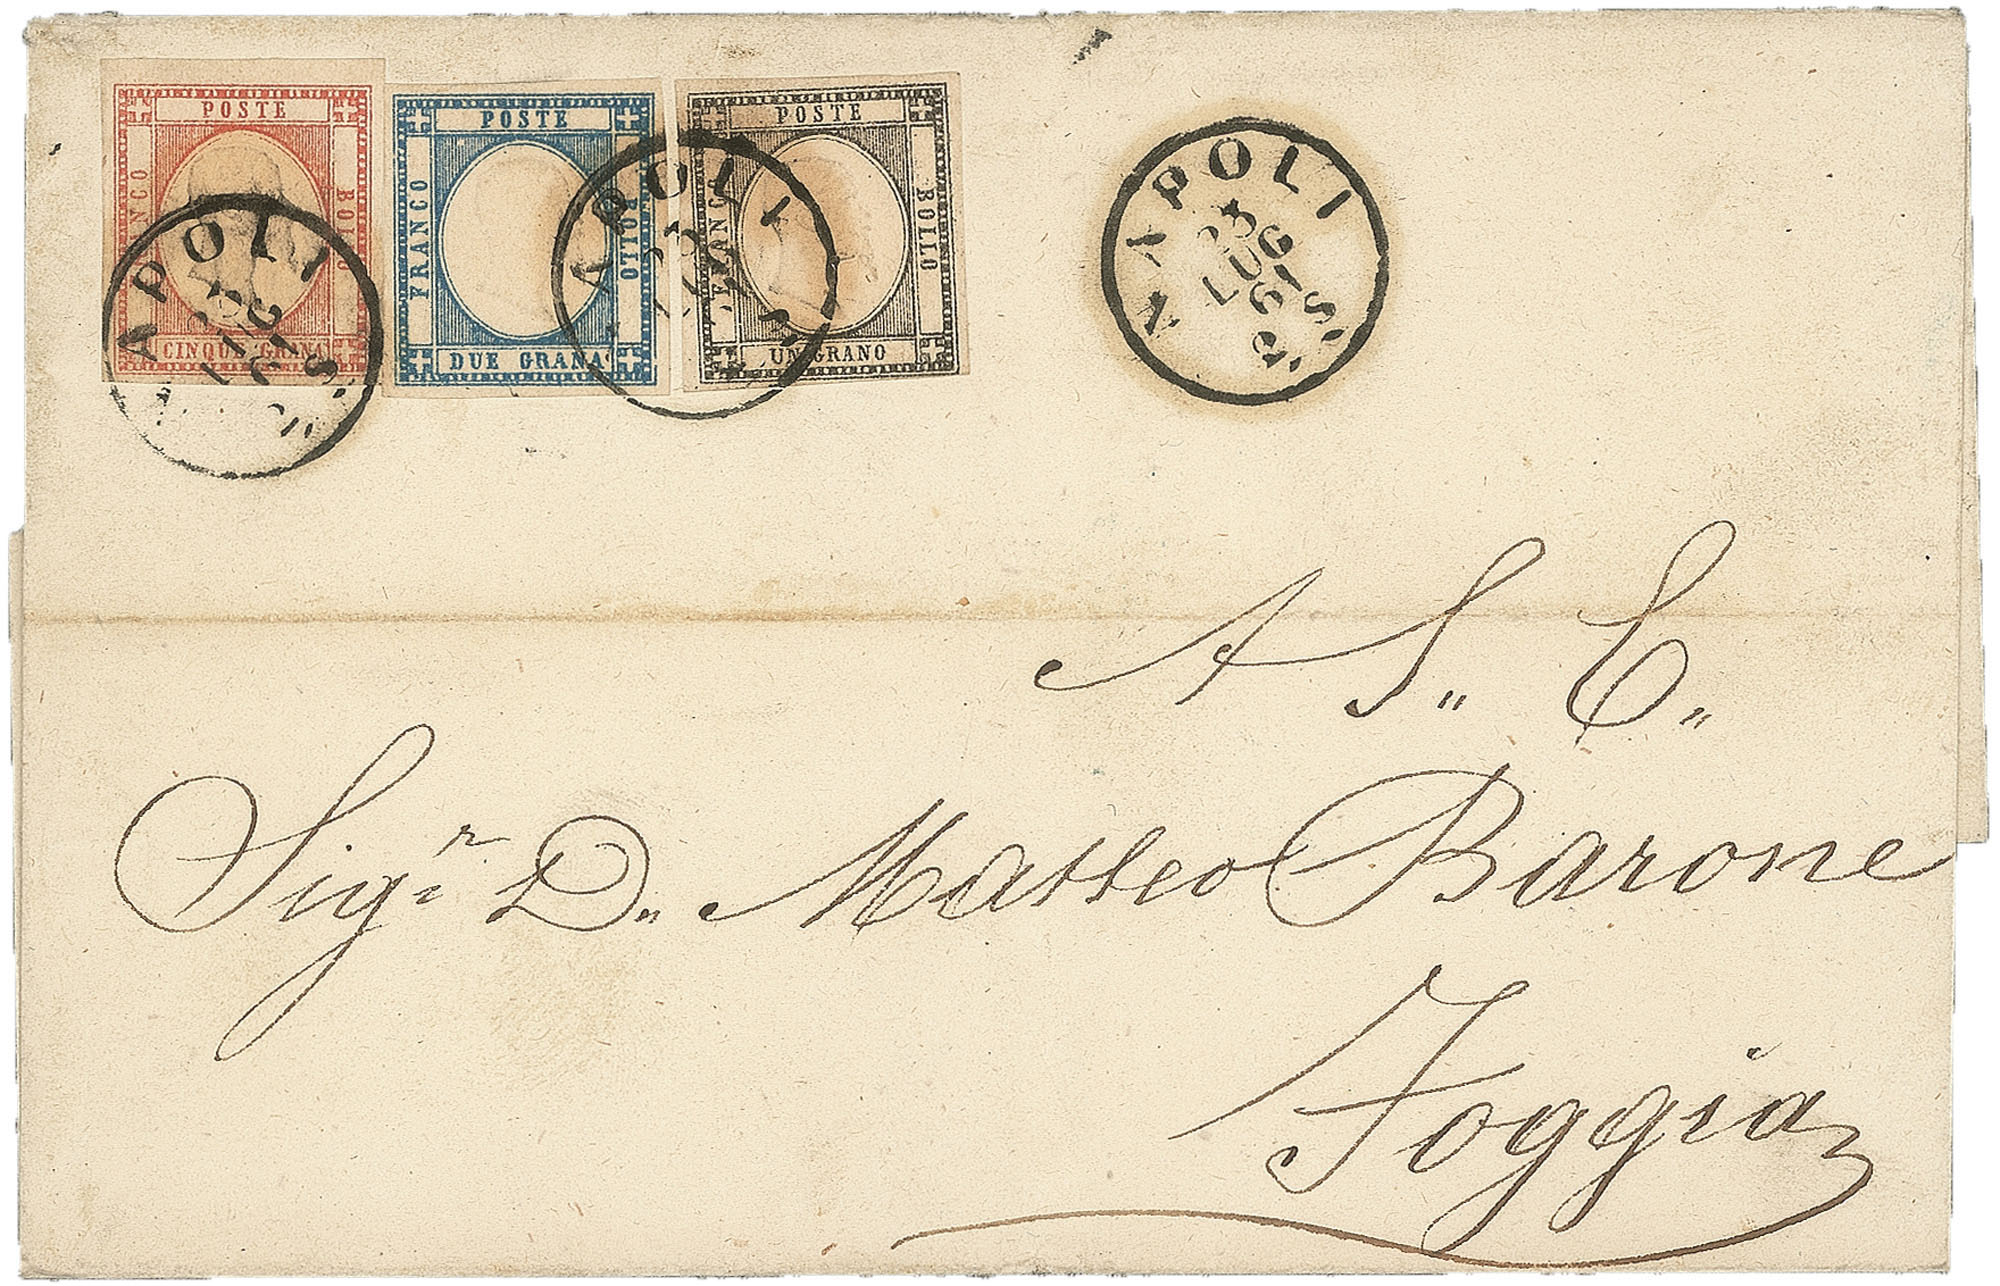 POSTE
FRANCO
BOLLO
CINQUE GRANA
POSTE
FRANCO
BOLLO
DUE GRANA
POSTE
FRANCO
BOLLO
UN GRANO
NAPOLI
LUG
61
NAPOLI
NAPOLI
23
LUG
61
A S.. E..
Sig.r D.. Matteo Barone
Foggia